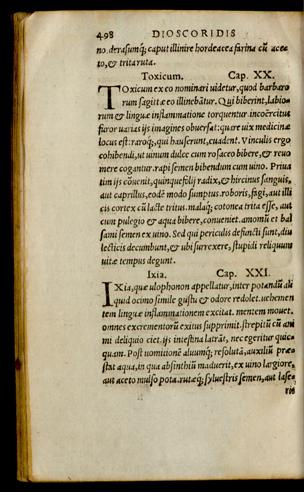 498 DIOSCORIDIS
no. derasumq́; caput illinire hordeacea farina cũ ace
to, & trita ruta.
Toxicum. Cap. XX.
TOxicum ex eo nominari uidetur, quod barbaro
rum sagittæ eo illinebãtur. Qui biberint, labio-
rum & linguæ inflammatione torquentur incoërcitus
furor uarias ijs imagines obuersat: quare uix medicinæ
locus est: raroq́;, qui hauserunt, euadunt. Vinculis ergo
cohibendi, ut uinum dulce cum rosaceo bibere, & reuo
mere cogantur. rapi semen bibendum cum uino. Priua
tim ijs cõuenit, quinquefolij radix, & hircinus sanguis,
aut caprillus, eodẽ modo sumptus. roboris, fagi, aut illi
cis cortex cũ lacte tritus. malaq́; cotonea trita esse, aut
cum pulegio & aqua bibere, conueniet. amomũ et bal
sami semen ex uino. Sed qui periculis defuncti sunt, diu
lecticis decumbunt, & ubi surrexere, stupidi reliquum
uitæ tempus degunt.
Ixia. Cap. XXI.
IXia, quæ ulophonon appellatur, inter potandũ ali
quid ocimo simile gustu & odore redolet. uehemen
tem linguæ inflammationem excitat. mentem mouet.
omnes excrementorũ exitus supprimit. strepitũ cũ ani
mi deliquio ciet. ijs intestina latrãt, nec egeritur quic-
quam. Post uomitionẽ aluumq́; resolutã, auxiliũ præ-
stat aqua, in qua absinthiũ maduerit, ex uino largiore,
aut aceto mulso pota. rutæq́; syluestris semen, aut laser-
ris